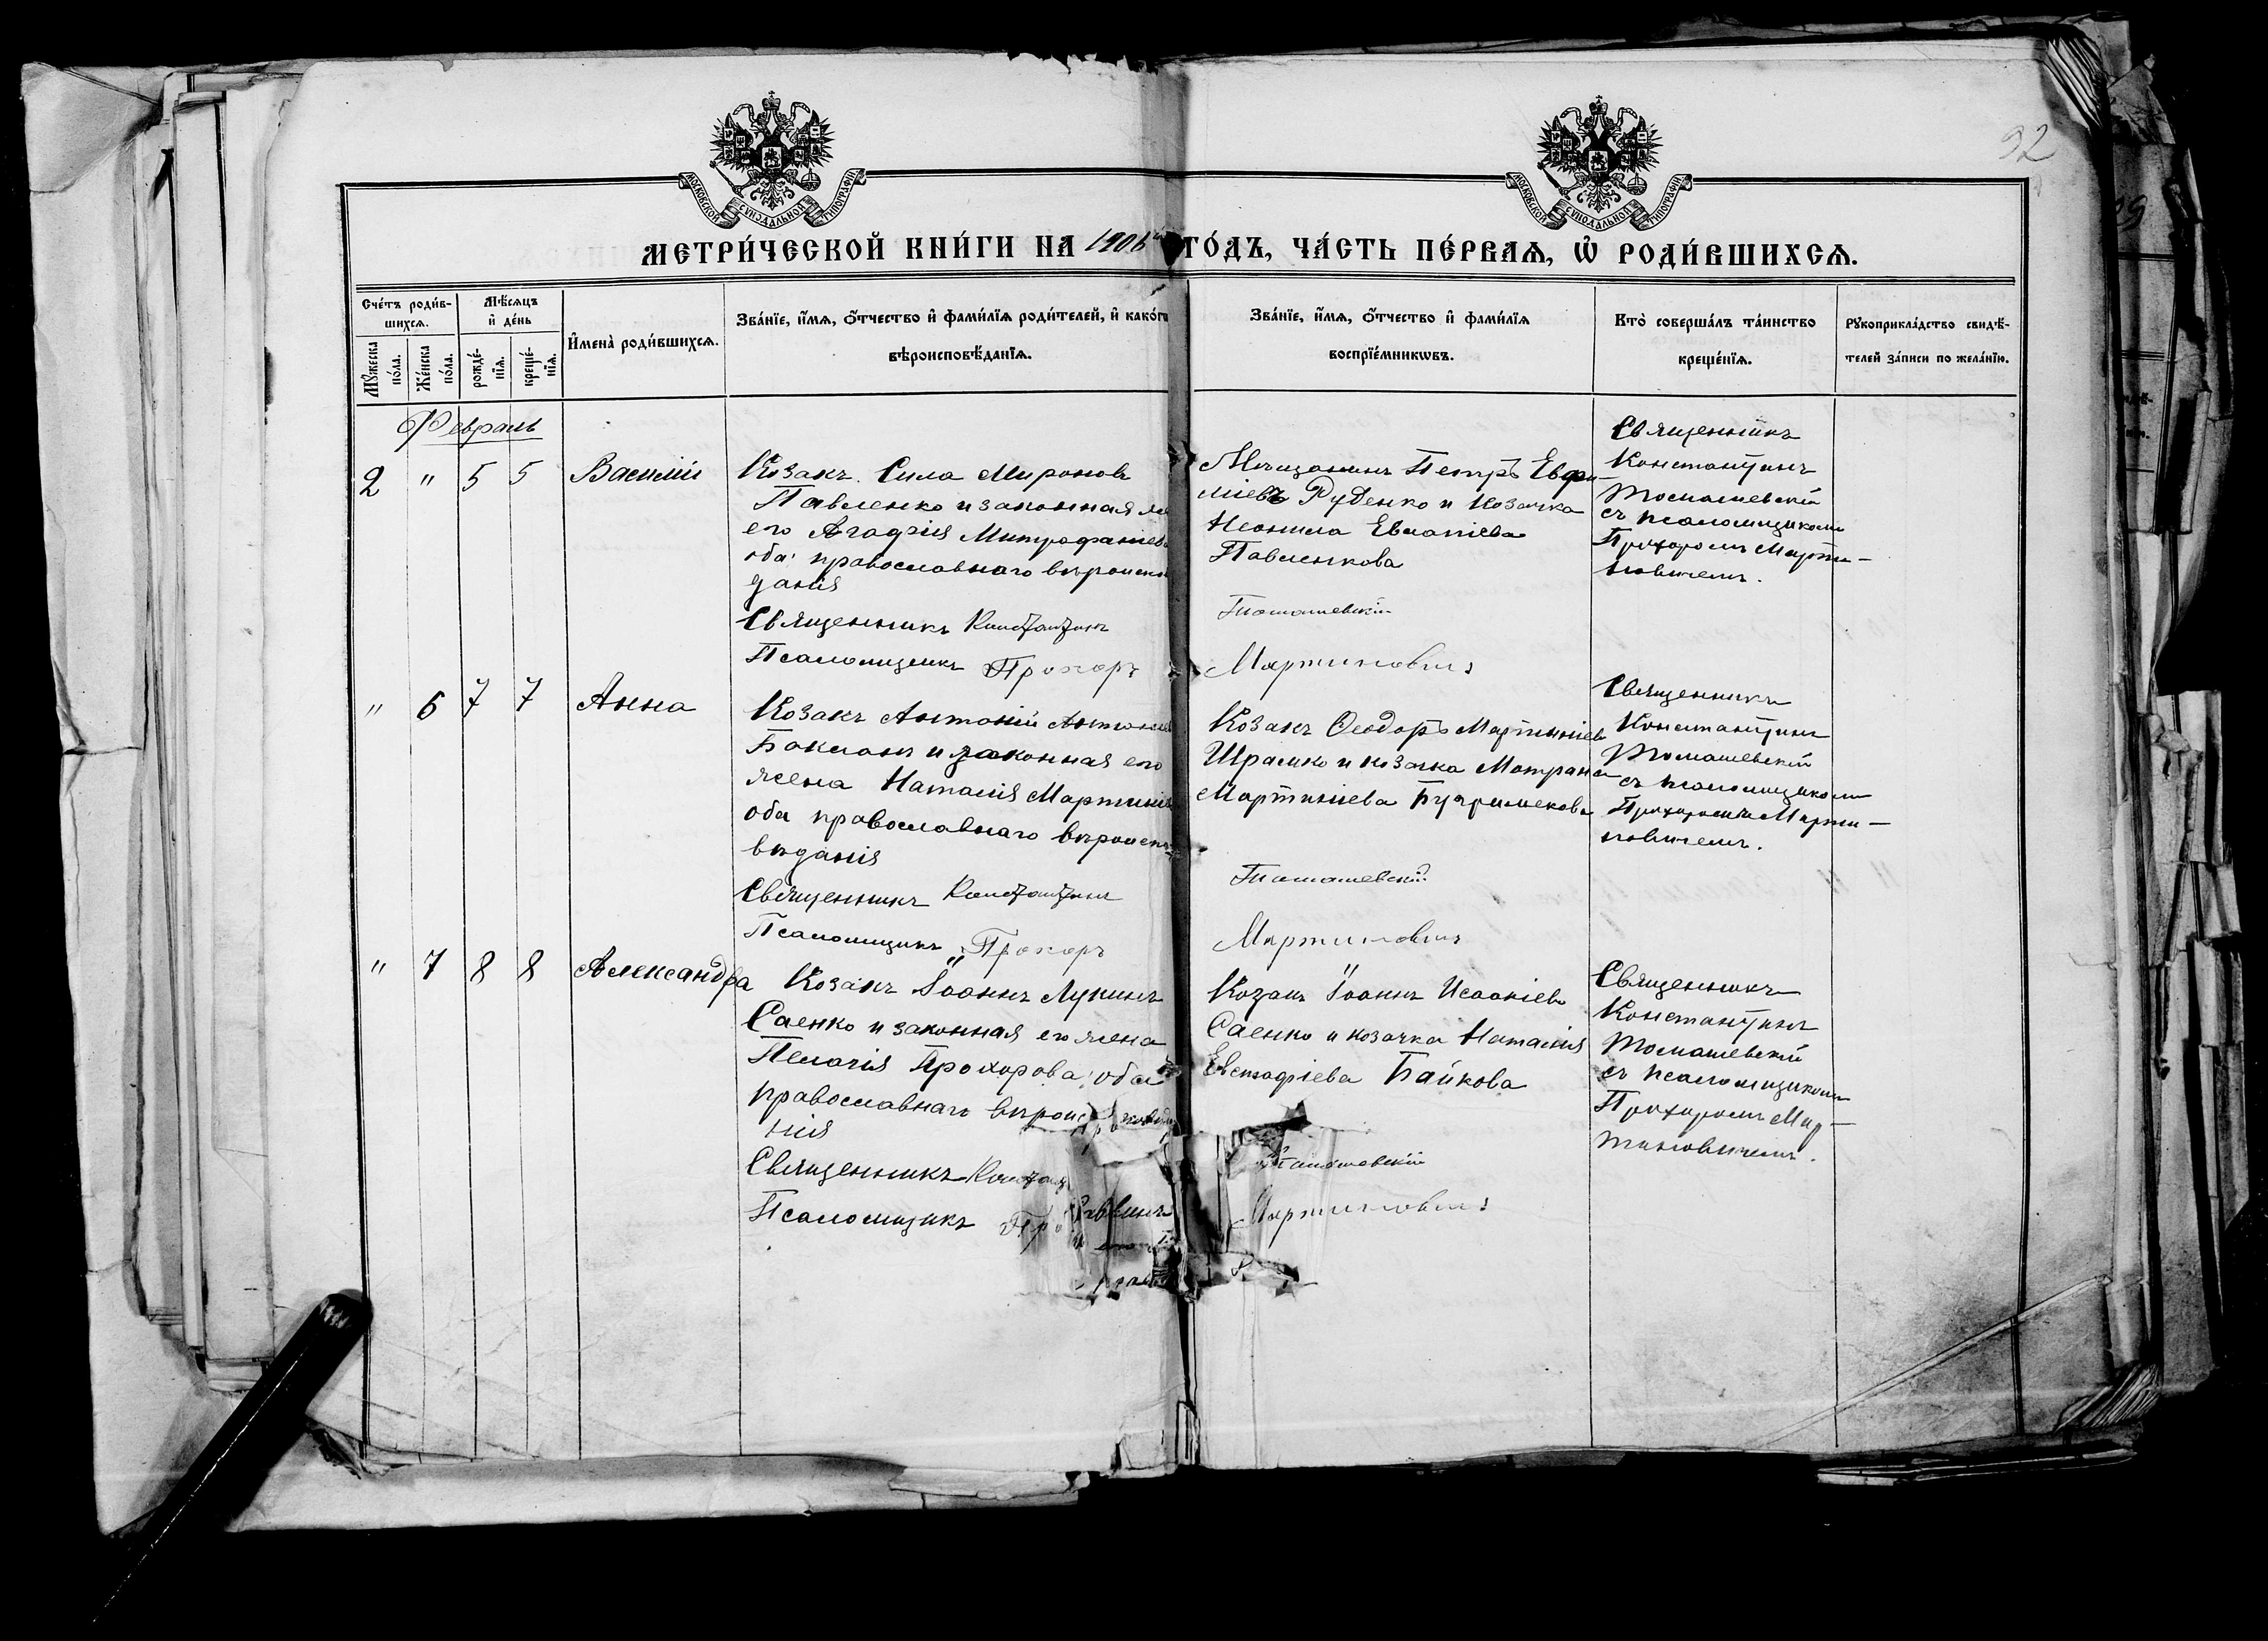 92
МОСКОВСКОЙ СѴНОДАЛЬНОЙ ТИПОГРАФІИ
МОСКОВСКОЙ СѴНОДАЛЬНОЙ ТИПОГРАФІИ
МЕТРИ́ЧЕСКОЙ КНИ́ГИ НА 1906 ГО́ДЪ, ЧА́СТЬ ПЕ́РВАѦ, Ѡ҆ РОДИ́ВШИХСѦ.
Сче́тъ роди́в-
шихсѧ.
Мꙋ́жеска по́ла.
Же́нска по́ла.
Мѣ́сѧцъ
и҆ де́нь
рожде́-
нїѧ.
креще́-
нїѧ.
И҆мена̀ роди́вшихсѧ.
Зва́нїе, и҆́мѧ, ѻ҆́тчество и҆ фами́лїѧ роди́телей, и҆ како́гѡ
вѣроисповѣ́данїѧ.
Зва́нїе, и҆́мѧ, ѻ҆́тчество и҆ фами́лїѧ
воспрїе́мникѡвъ.
Кто̀ соверша́лъ та́инство
креще́нїѧ.
Рꙋкоприкла́дство свидѣ́-
телей за́писи по жела́нїю.
Февраль
2 " 5 5 Василій
Козакъ Сила Миронов
Павленко и законная
его Агафія Митрофаніев
оба православнаго вѣроиспо
данія
Священникъ Константинъ
Псаломщикъ Прохоръ
Мѣщанинъ Петръ Евфи-
міевъ Руденко и козачка
Неонила Евлапіева
Павленкова
Томашевскій
Мартиновичъ
Священникъ
Константинъ
Томашевскій
съ псаломщикомъ
Прохоромъ Марти-
новичемъ.
" 6 7 7 Анна
Козакъ Антоній Антоніев
Бокланъ и законная его
жена Наталія Мартиніев
оба православнаго вѣроиспо
вѣданія
Священникъ Константинъ
Псаломщикъ Прохоръ
Козакъ Ѳеодоръ Мартиніев
Шрамко и козачка Мотрона
Мартиніева
Томашевскій
Мартиновичъ
Священникъ
Константинъ
Томашевскій
съ псаломщикомъ
Прохоромъ Марти-
новичемъ.
" 7 8 8 Александра
Козакъ Іоаннъ Лукинъ
Саенко и законная его жена
Пелагія Прохорова, оба
православнаго вѣроис
нія
Священникъ Констан
Псаломщикъ Про
Козакъ Іоаннъ Исаакіев
Саенко и козачка Наталія
Евстафіева Байкова
Томашевскій
Мартиновичъ
Священникъ
Константинъ
Томашевскій
съ псаломщикомъ
Прохоромъ Мар-
тиновичемъ.